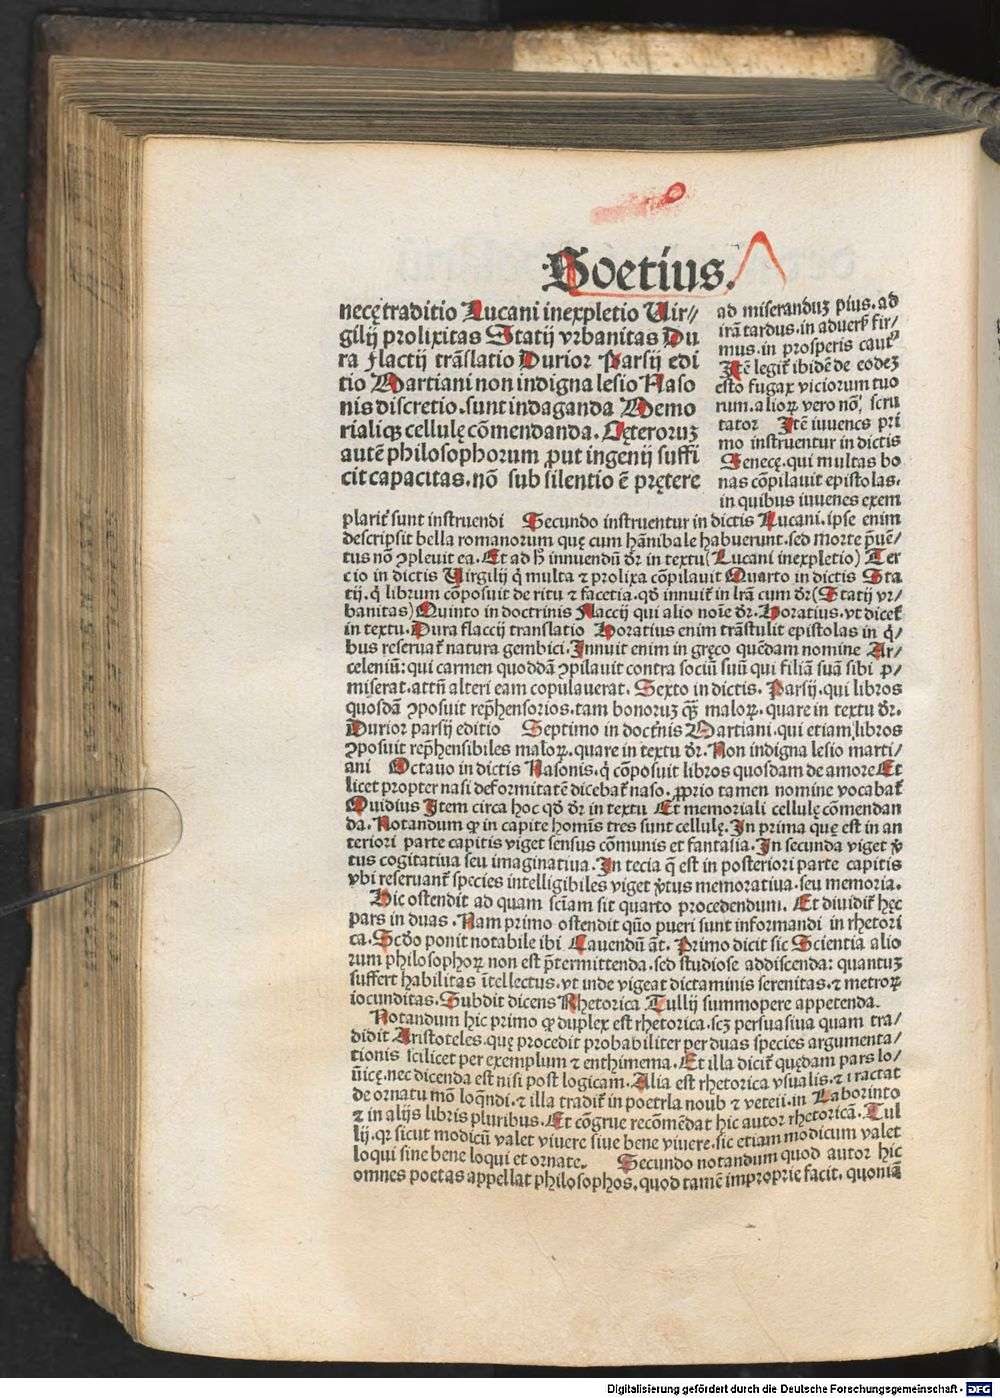 Boetius.
necę traditio Lucani inexpletio Uir⸗
gilij prolixitas Statij vrbanitas Du
ra flactij trāslatio Durior Parsij edi
tio Martiani non indigna lesio Naso
nis discretio. sunt indaganda Memo
rialiqȝ cellulę cōmendanda. Cęteroruȝ
autē philosophorum ꝓut ingenij suffi
cit capacitas. nō sub silentio ē pręterе
ad miseranduȝ pius. ad
irā tardus. in aduers̄ fir⸗
mus. in prosperis caut⁹
Itē legit᷑ ibidē de eodeȝ
esto fugax viciorum tuo
rum. alioꝝ vero nō scru
tator Itē iuuenes pri
mo instruentur in dictis
Senecę. qui multas bo
nas cōpilauit epistolas.
in quibus iuuenes exem
plarit᷑ sunt instruendi Secundo instruentur in dictis Lucani. ipse enim
descripsit bella romanorum quę cum hānibale habuerunt. sed morte p̄uē⸗
tus nō ꝯpleuit ea. Et ad h̄ innuendū dr̄ in textu (Lucani inexpletio) Ter
cio in dictis Uirgilij q̇ multa ⁊ prolixa cōpilauit Quarto in dictis Sta
tij. q̇ librum cōposuit de ritu ⁊ facetia. qd̄ innuit᷑ in lr̄a cum dr̄ (Statij vr⸗
banitas) Quinto in doctrinis Flaccij qui alio noīe dr̄. Horatius. vt dicet᷑
in textu. Dura flaccij translatio Horatius enim trāstulit epistolas in q̇⸗
bus reseruat᷑ natura gembici. Innuit enim in gręco quēdam nomine Ar⸗
celeniū: qui carmen quoddā ꝯpilauit contra sociū suū qui filiā suā sibi ꝓ⸗
miserat. attn̄ alteri eam copulauerat. Sexto in dictis. Parsij. qui libros
quosdā ꝯposuit rep̄hensorios. tam bonoruȝ qȝ̄ maloꝝ. quare in textu dr̄.
Durior parsij editio Septimo in doct̄nis Martiani. qui etiam libros
ꝯposuit rep̄hensibiles maloꝝ. quare in textu dr̄. Non indigna lesio marti⸗
ani Octauo in dictis Nasonis. q̇ cōposuit libros quosdam de amore Et
licet propter nasi deformitatē dicebat᷑ naso. ꝓprio tamen nomine vocabat᷑
Ouidius Item circa hoc qd̄ dr̄ in textu Et memoriali cellulę cōmendan
da. Notandum ꝙ in capite homīs tres sunt cellulę. In prima quę est in an
teriori parte capitis viget sensus cōmunis et fantasia. In secunda viget v̄
tus cogitatiua seu imaginatiua. In tecia q̄ est in posteriori parte capitis
vbi reseruant᷑ species intelligibiles viget v̄tus memoratiua. seu memoria.
Hic ostendit ad quam sciam sit quarto procedendum. Et diuidit᷑ hęc
pars in duas. Nam primo ostendit qūo pueri sunt informandi in rhetori
ca. Scd̄o ponit notabile ibi Cauendū āt. Primo dicit sic Scientia alio
rum philosophoꝝ non est p̄termittenda. sed studiose addiscenda: quantuȝ
suffert habilitas ītellectus. vt inde vigeat dictaminis serenitas. ⁊ metroꝝ
iocunditas. Subdit dicens Rhetorica Tullij summopere appetenda.
Notandum hic primo ꝙ duplex est rhetorica. scȝ persuasiua quam tra⸗
didit Aristoteles. quę procedit probabiliter per duas species argumenta⸗
tionis scilicet per exemplum ⁊ enthimema. Et illa dicit᷑ quędam pars lo⸗
ūicę. nec dicenda est nisi post logicam. Alia est rhetorica vsualis. ⁊ tractat
de ornatu mō loq̄ndi. ⁊ illa tradit᷑ in poetrla noub ⁊ veteii. in Laborinto
⁊ in alijs libris pluribus. Et cōgrue recōmēdat hic autor rhetoricā. Tul
lij. qꝛ sicut modicū valet viuere siue bene viuere. sic etiam modicum valet
loqui sine bene loqui et ornate. Secundo notandum quod autor hic
omnes poetas appellat philosophos. quod tamē improprie facit. quoniā
Digitalisierung gefördert durch die Deutsche Forschungsgemeinschaft - DFG